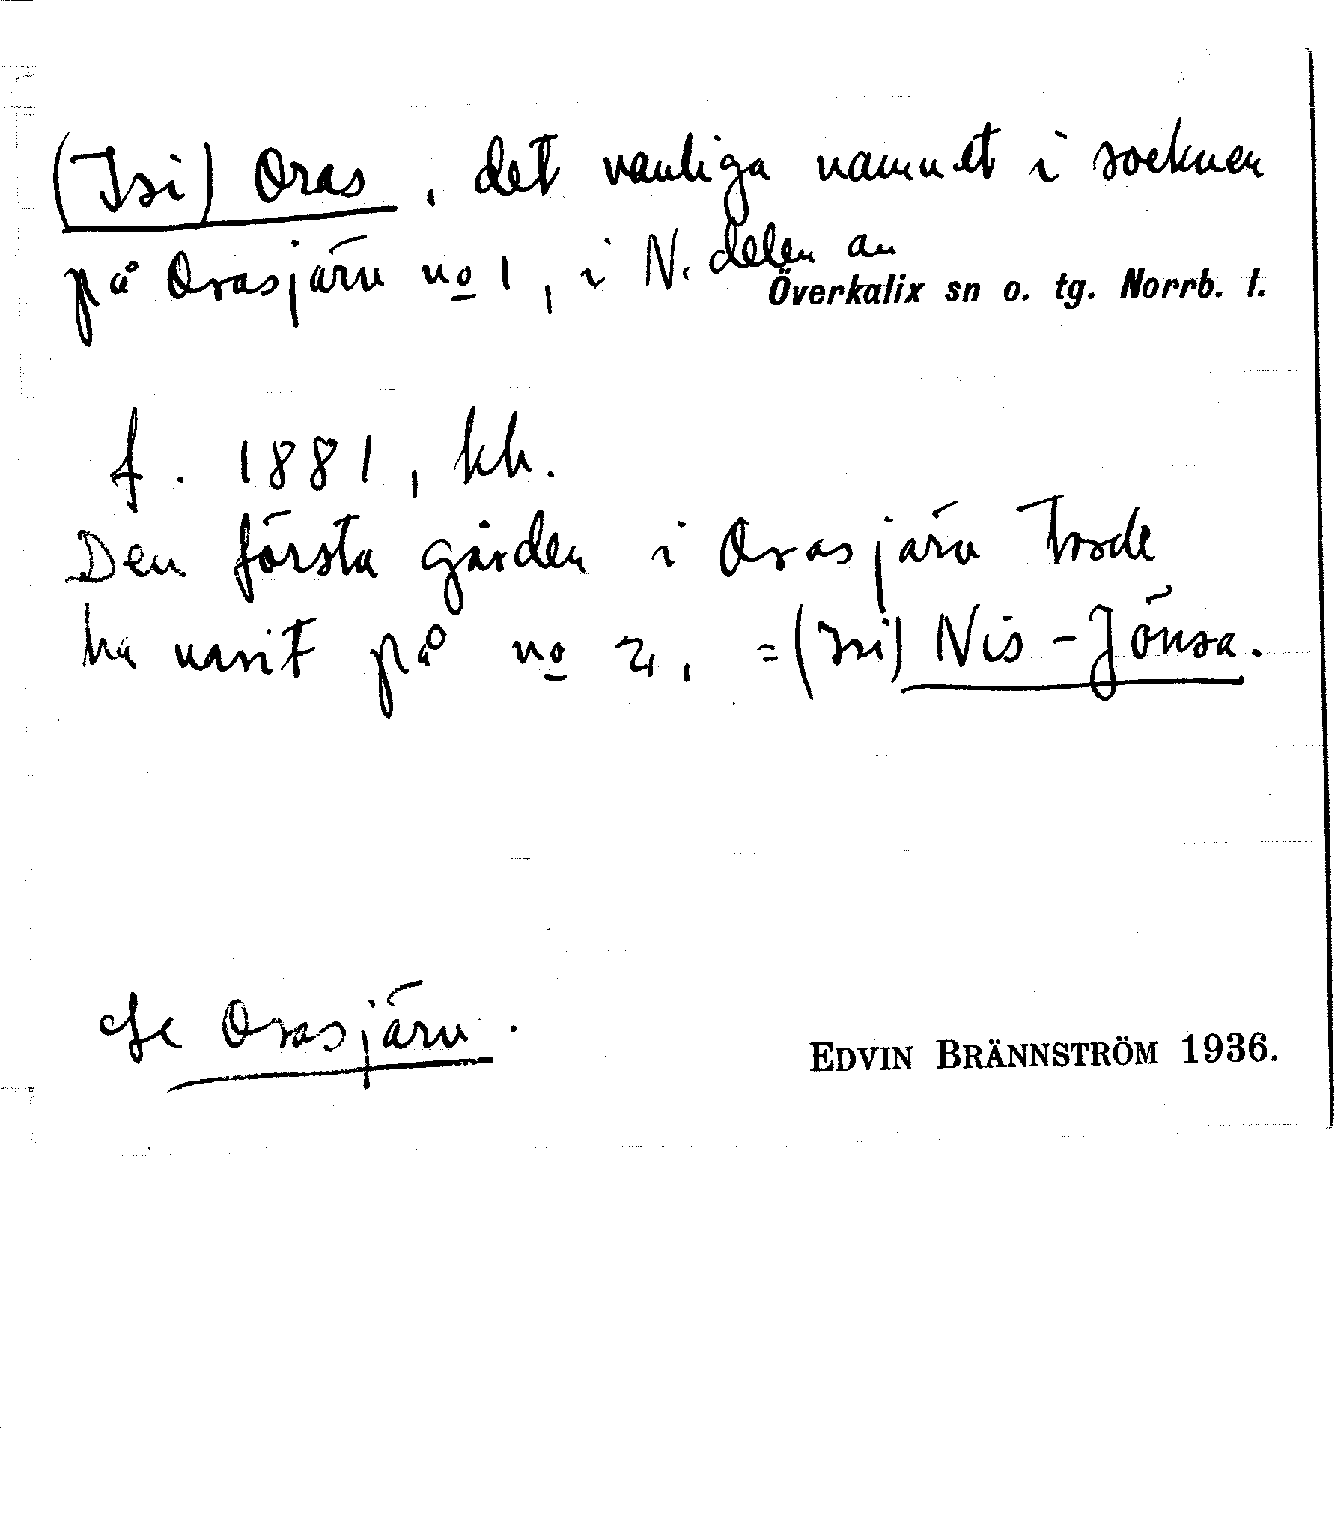 (Isi) Oras, det vanliga namnet i socknen
på Orasjärv no 1, i N. delen av
Överkalix sn o. tg. Norrb. l.
f. 1881, kh.
Den första gården i Orasjärv torde
ha varit på no 2, = (Isi) Nis-Jönsa.
Se Orasjärv.
EDVIN BRÄNNSTRÖM 1936.